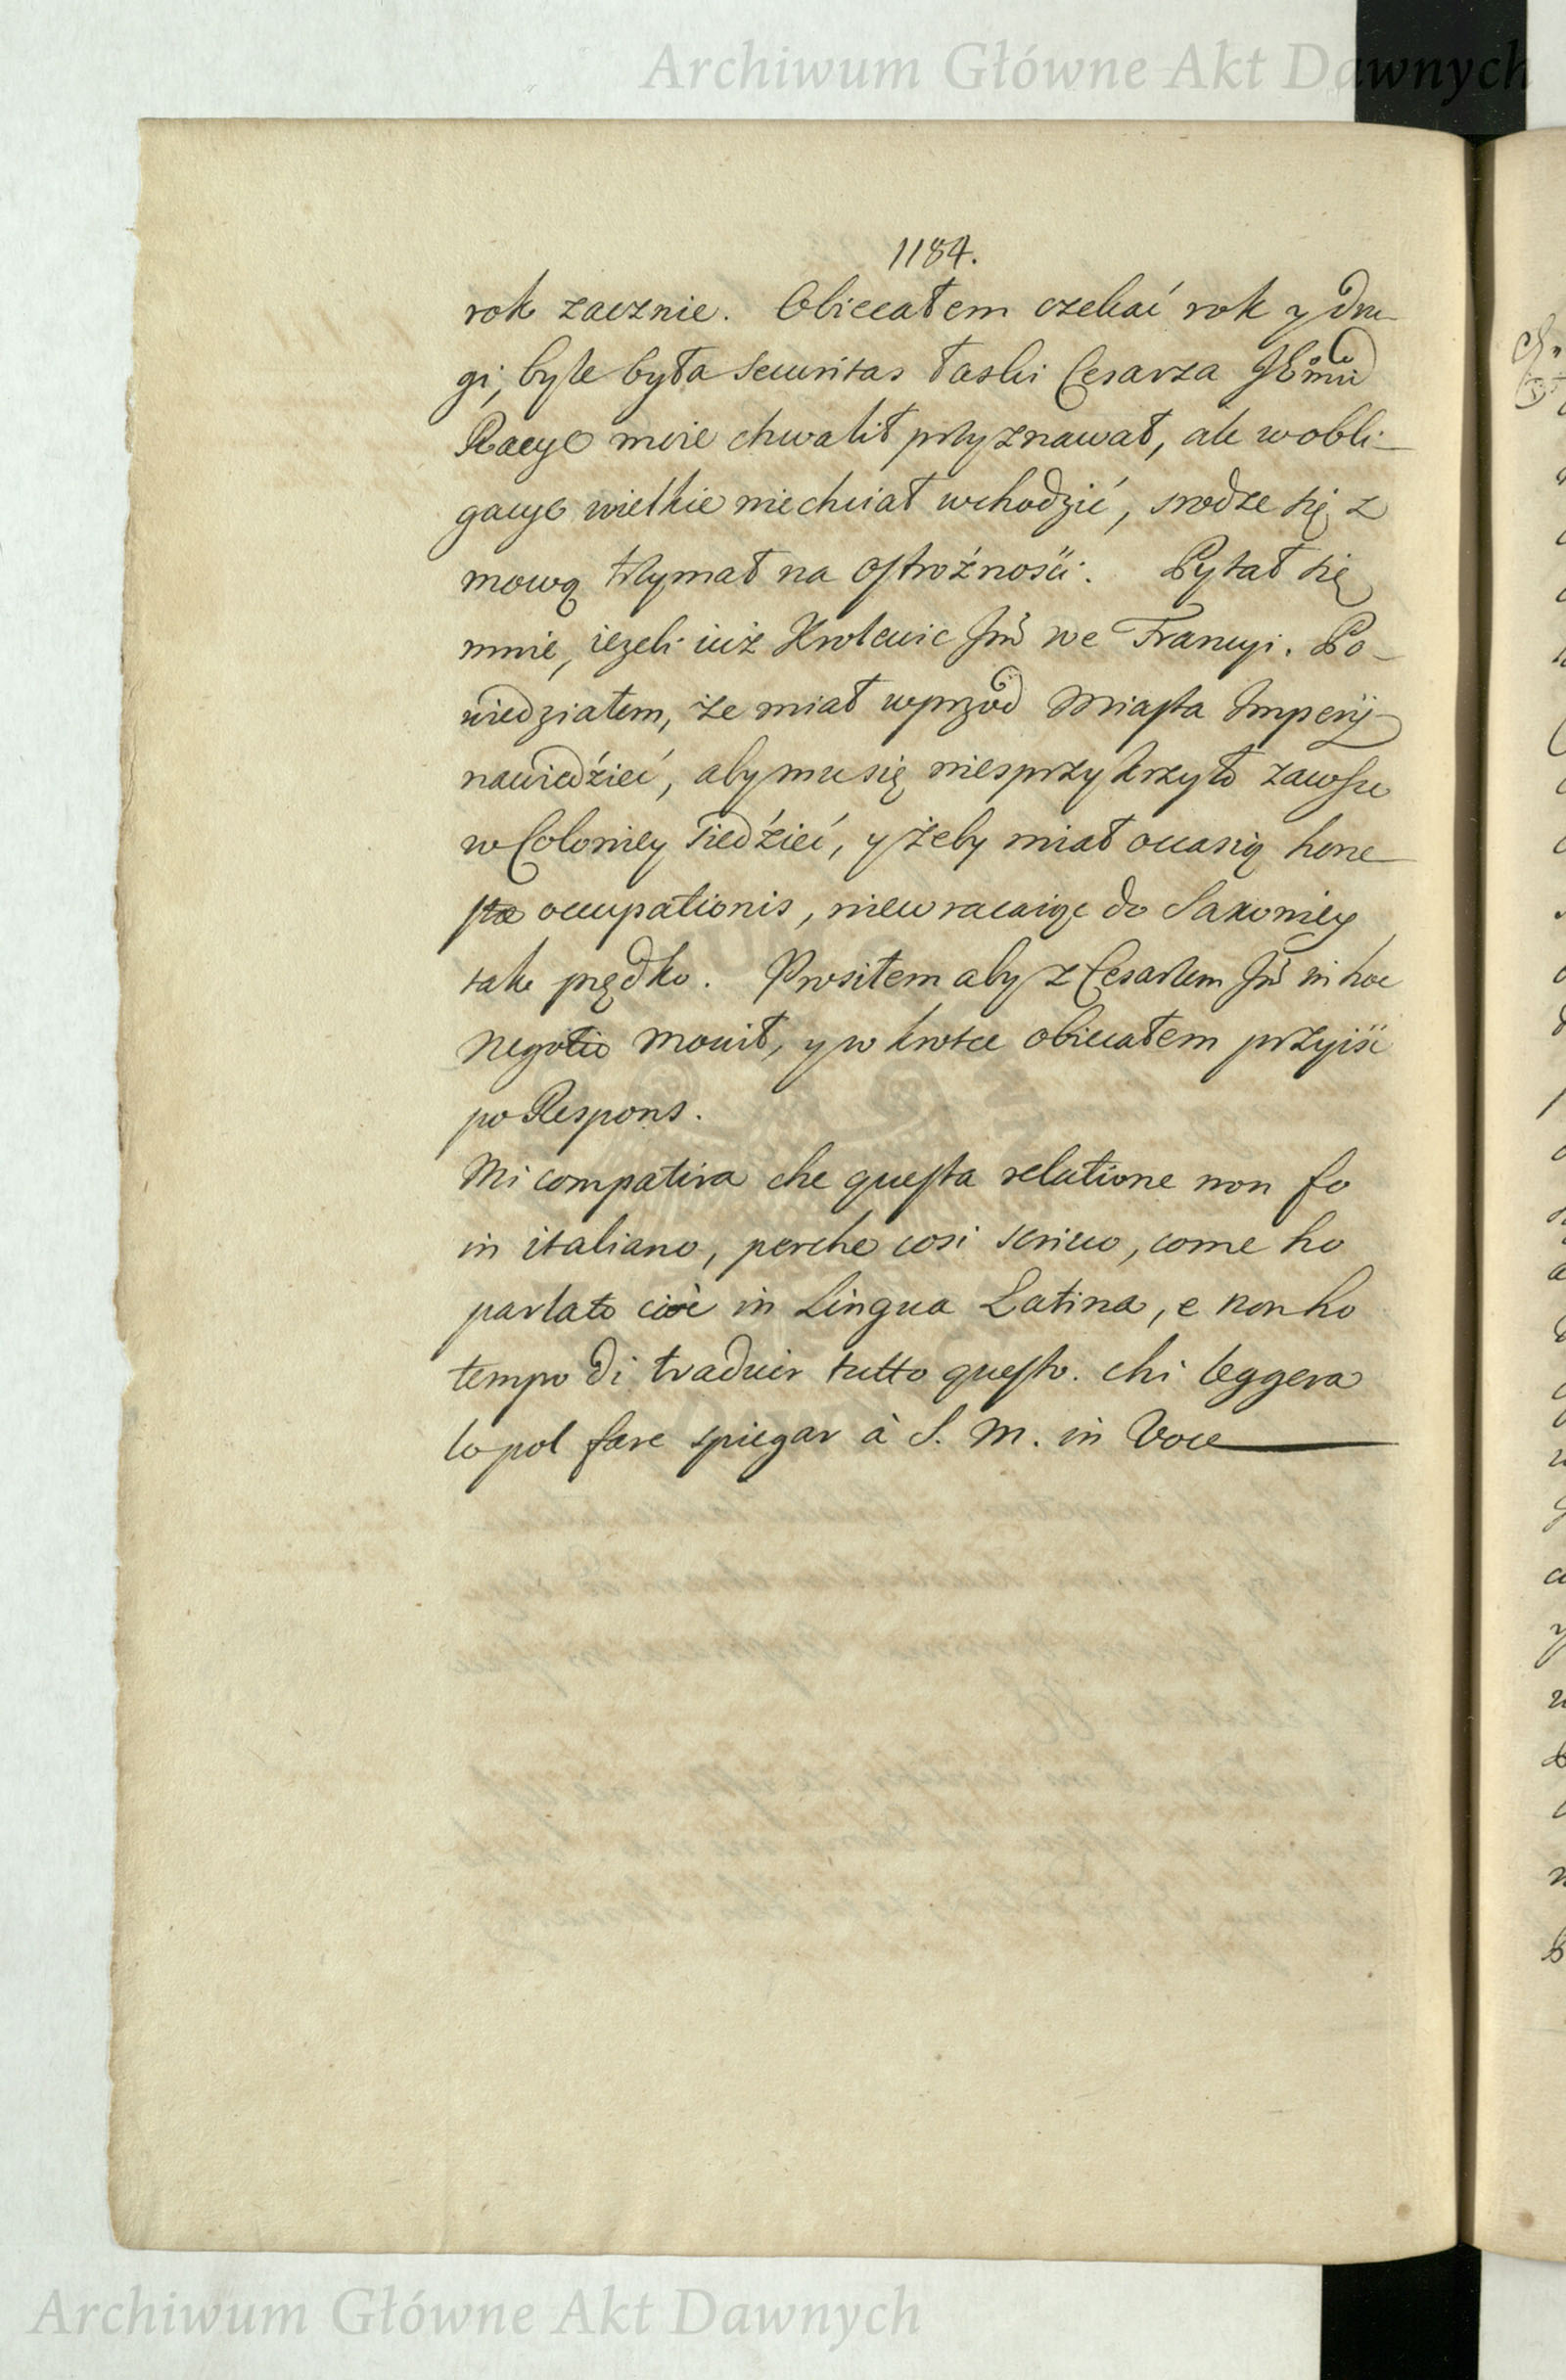 Archiwum Główne Akt Dawnych
1184.
rok zacznie. Obiecałem czekać rok y dru-
gi, byle była securitas łaski Cesarza JE͠m̊ci
Racye moie chwalił przyznawał, ale w obli-
gacye wielkie niechciał wchodzić, srodze się z
mową trzymał na ostrożności. Pytał się
mnie, ieżeli iuż Krolewic Jm̃ we Francyi. Po-
wiedziałem, że miał wprzod Miasta Imperij
nawiedzieć, aby mu się niesprzykrzyło zawsze
w Coloniey siedzieć, y żeby miał occasią hone-
stæ occupationis, niewracaiąc do Saxoniey
tak prędko. Prosiłem aby z Cesarzem Jm̃ in hoc
negotio mowił, y w krotce obiecałem przyiść
po Respons.
Mi compatira che questa relatione non fo
in italiano, perche cosi scrivo, come ho
parlato cioè in Lingua Latina, e non ho
tempo di tradurr tutto questo. chi leggera
lo pol fare spiegar à S. M. in Voce
Archiwum Główne Akt Dawnych